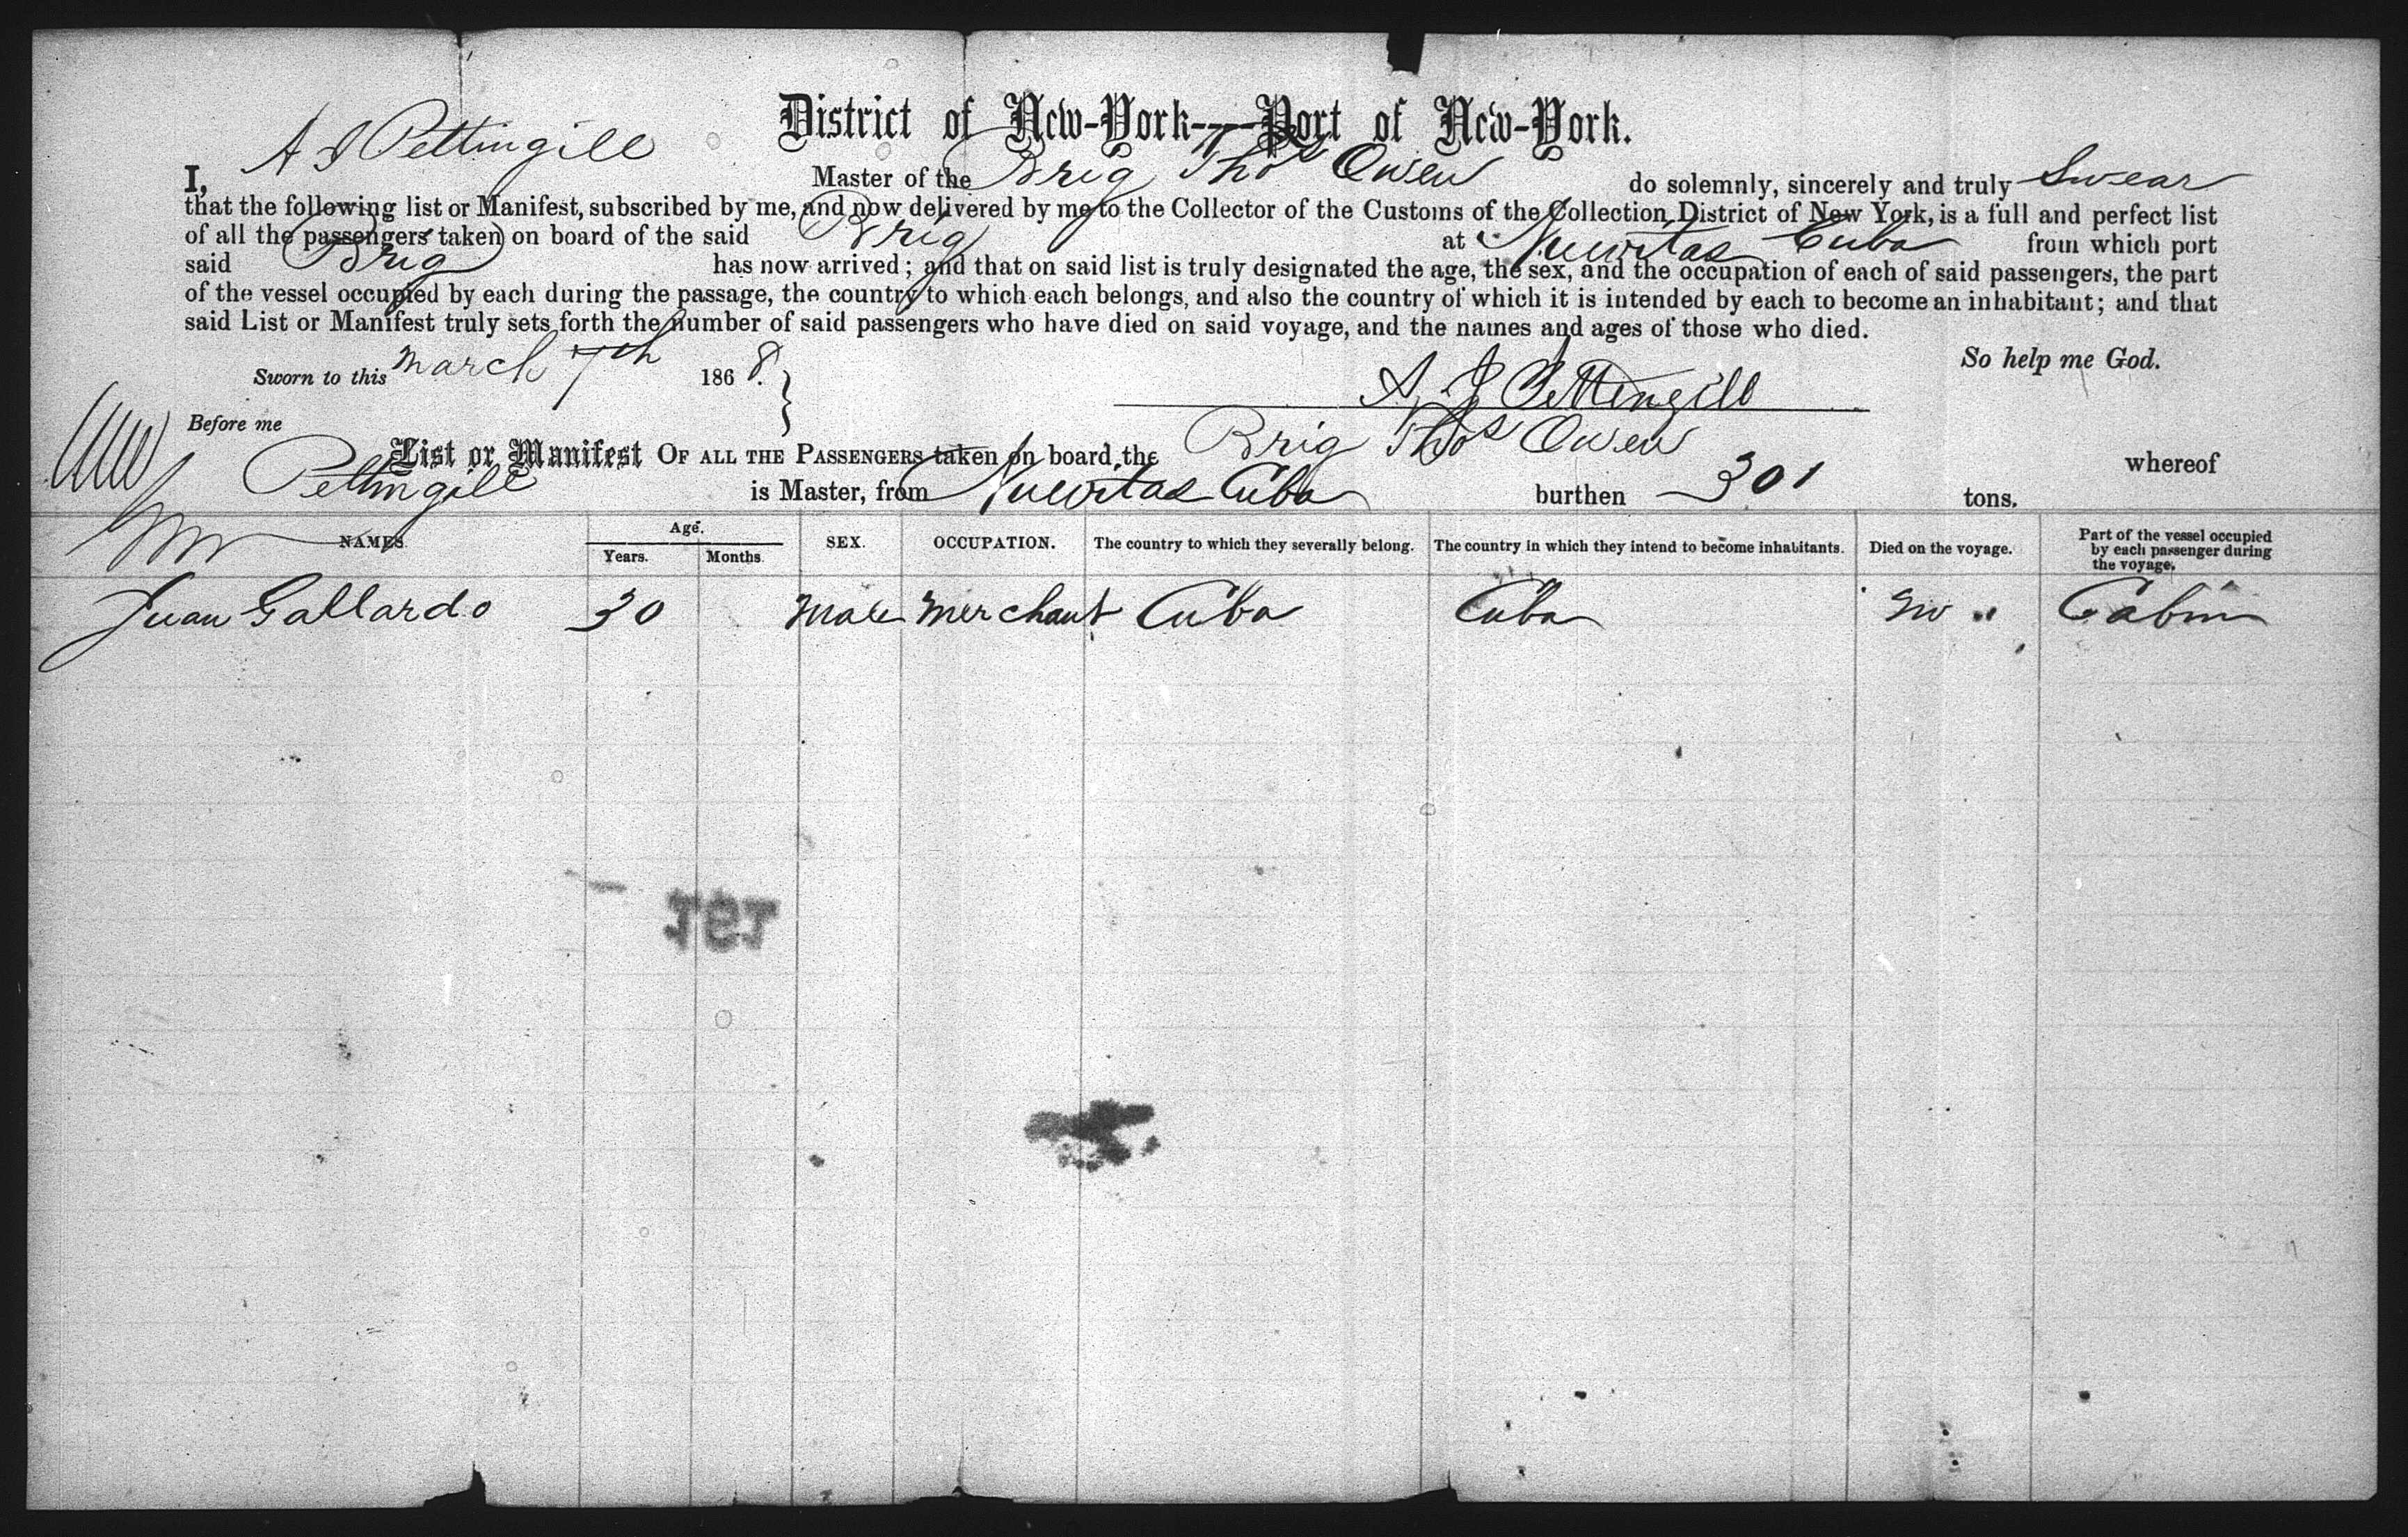 District of New-York--Port of New-York.
I, A J Pettingill Master of the Brig Thos Owen do solemnly, sincerely and truly swear
that the following list or Manifest, subscribed by me, and now delivered by me to the Collector of the Customs of the Collection District of New York, is a full and perfect list
of all the passengers taken on board of the said Brig at Nuevitas Cuba from which port
said Brig has now arrived; and that on said list is truly designated the age, the sex, and the occupation of each of said passengers, the part
of the vessel occupied by each during the passage, the country to which each belongs, and also the country of which it is intended by each to become an inhabitant; and that
said List or Manifest truly sets forth the number of said passengers who have died on said voyage, and the names and ages of those who died.
So help me God.
Sworn to this March 7th 1868.
A J Pettengill
Before me
List or Manifest OF ALL THE PASSENGERS taken on board the Brig Thos Owen whereof
Pettingill is Master, from Nuevitas Cuba burthen 301 tons.
NAMES. Age. Years. Months. SEX. OCCUPATION. The country to which they severally belong. The country in which they intend to become inhabitants. Died on the voyage. Part of the vessel occupied by each passenger during the voyage.
Juan Gallardo 30 Male Merchant Cuba Cuba Cabin
191